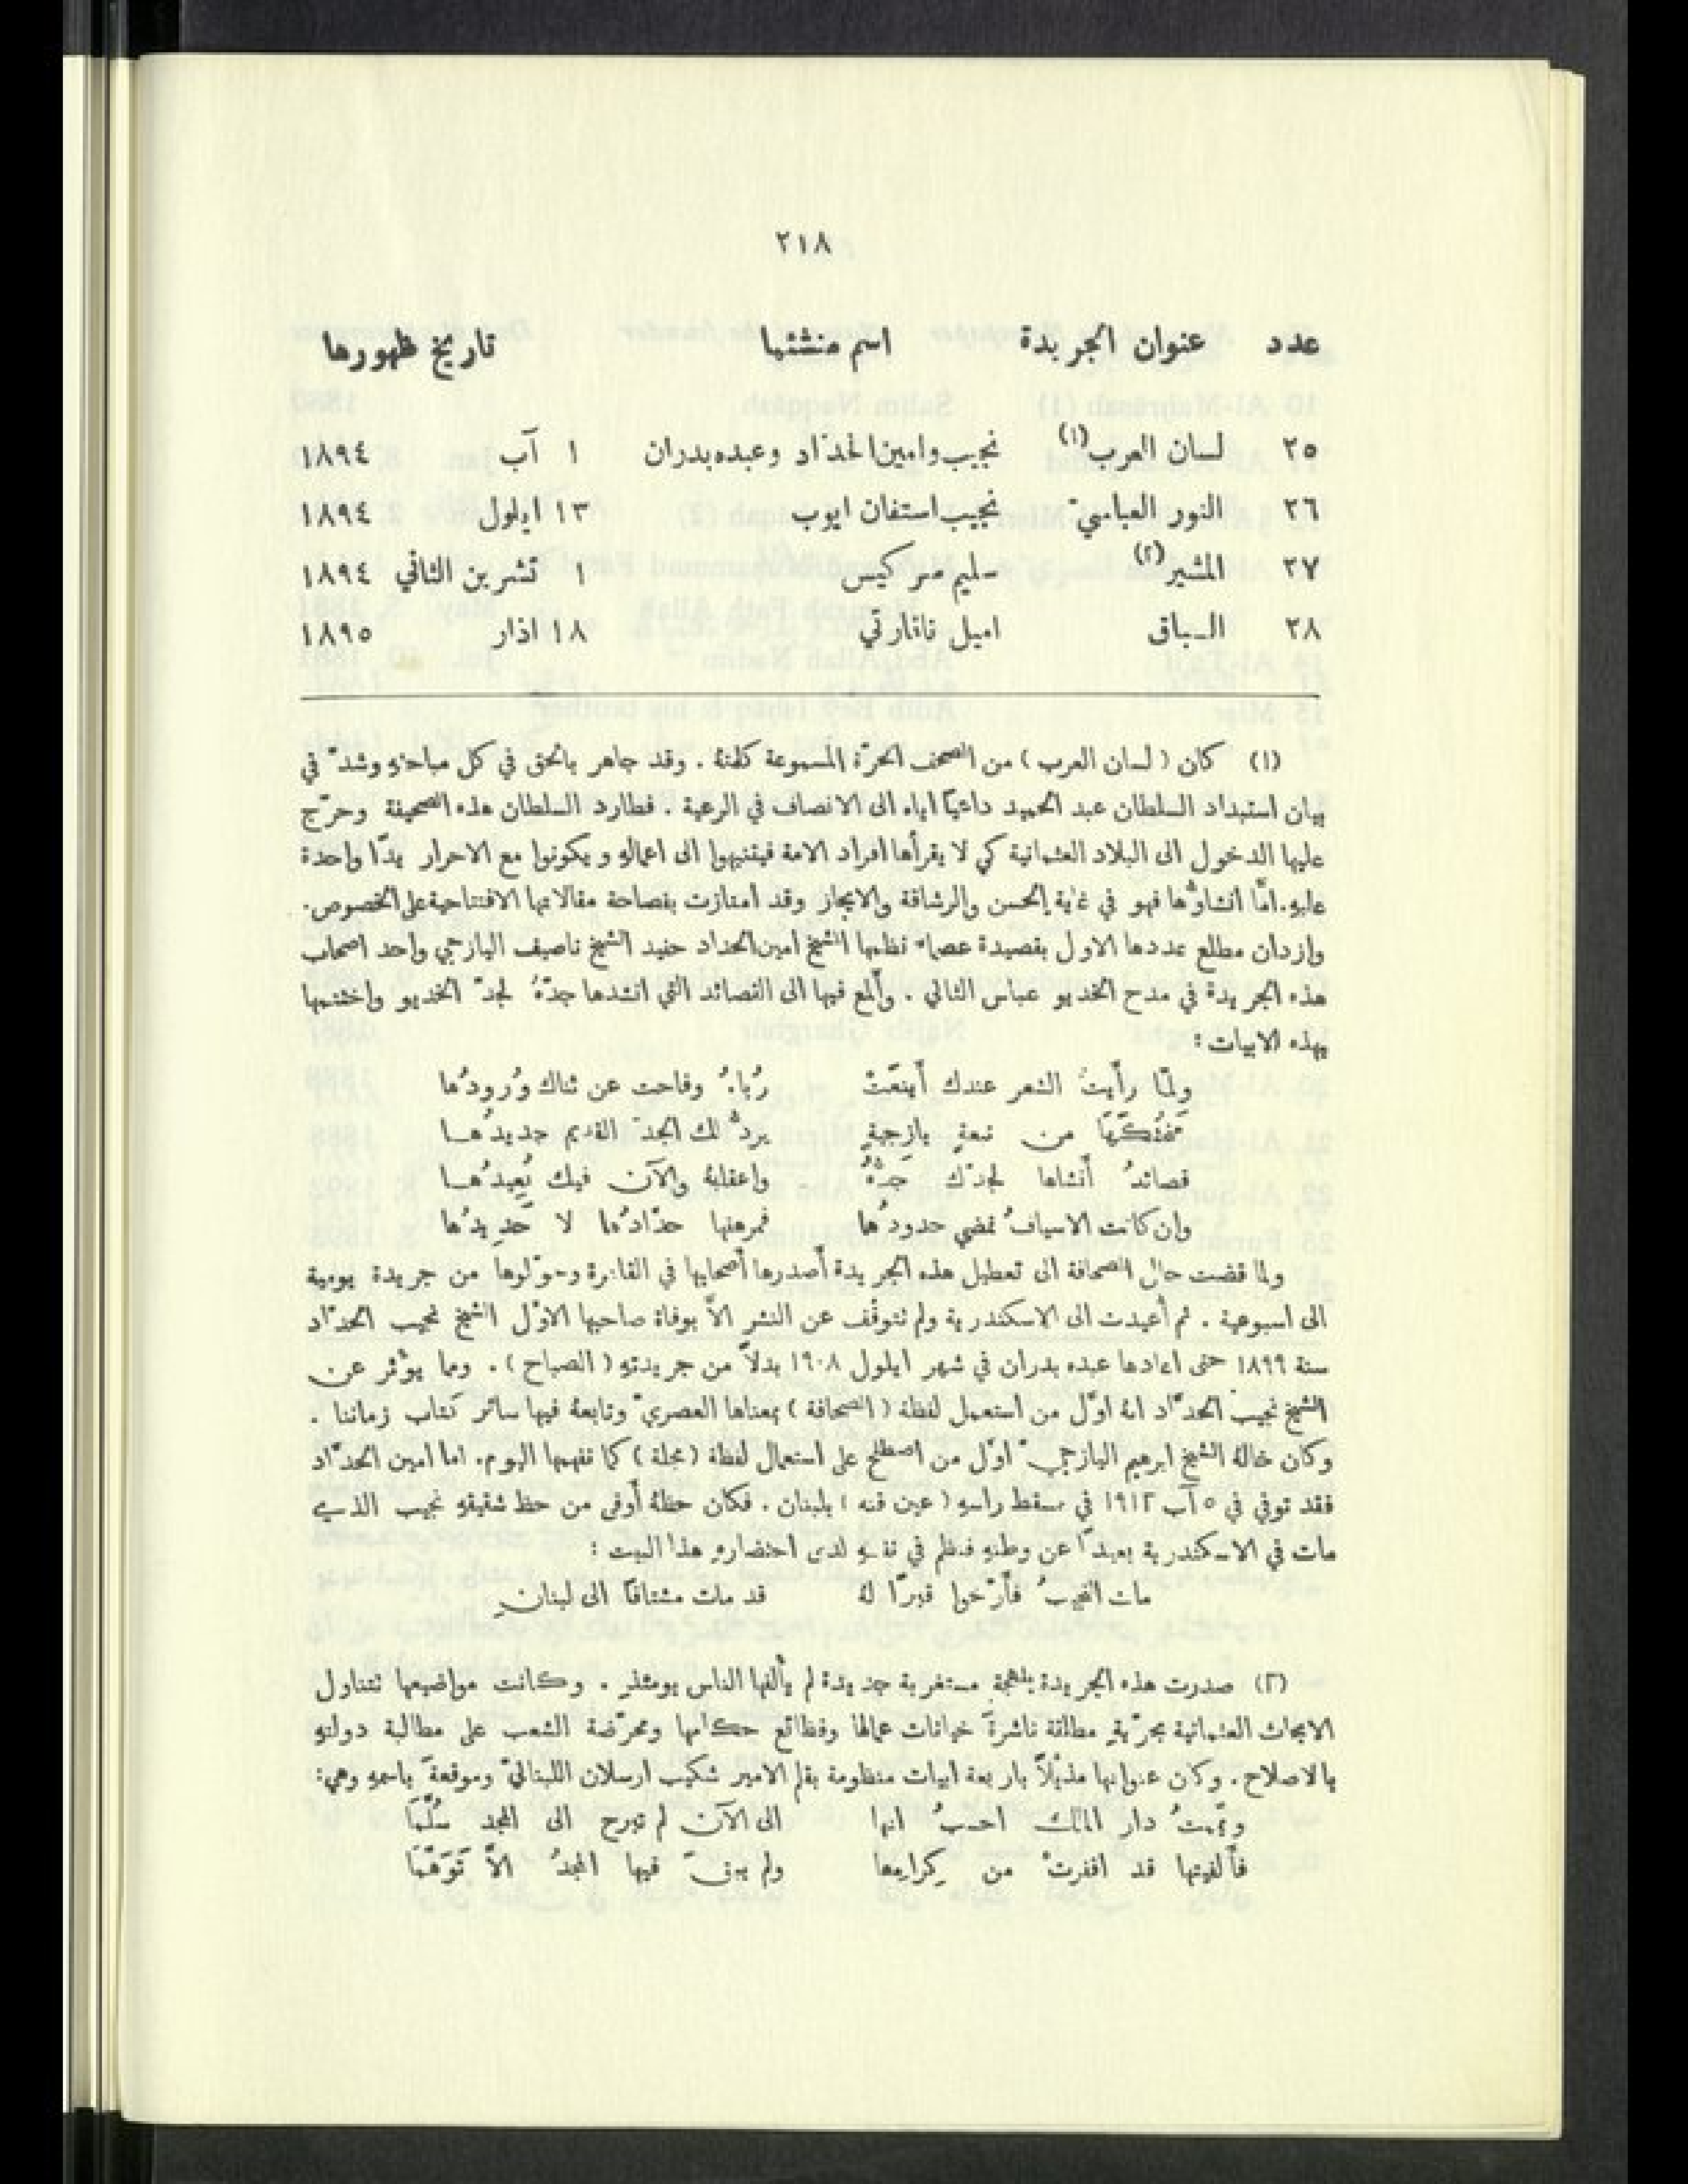 ٢١٨
عدد عنوان الجريدة اسم منشئها تاريخ ظهورها
٢٥ لسان العرب(١) نجيب وامين الحدّاد وعبده بدران ١ آب ١٨٩٤
٢٦ النور العباسيّ نجيب استفان ايوب ١٣ ايلول ١٨٩٤
٢٧ المشير(٢) سليم سركيس ١ تشرين الثاني ١٨٩٤
٢٨ السباق اميل نانارتي ١٨ اذار ١٨٩٥
(١) كان (لسان العرب) من الصحف الحرّة المسموعة كلمتهُ . وقد جاهر بالحق في كل مباحثهِ وشدّ في
بيان استبداد السلطان عبد الحميد داعيًا اياه الى الانصاف في الرعية . فطارد السلطان هذه الصحيفة وحرّج
عليها الدخول الى البلاد العثمانية كي لا يقرأها افراد الامة فيتنبهوا الى اعمالهِ ويكونوا مع الاحرار يدًا واحدة
عليهِ. امَّا انشاؤُها فهو في غاية الحسن والرشاقة والايجاز وقد امتازت بفصاحة مقالاتها الافتتاحية على الخصوص.
وازدان مطلع عددها الاول بقصيدة عصماء نظمها الشيخ امين الحداد حفيد الشيخ ناصيف اليازجي واحد اصحاب
هذه الجريدة في مدح الخديو عباس الثاني . وألمع فيها الى القصائد التي انشدها جدّهُ لجدّ الخديو واختتمها
بهذه الابيات :
ولمّا رأَيتُ الشعر عندك أَينعَتْ رُباهُ وفاحت عن ثناك وُرودُها
من نبعةٍ يازجيةٍ يردُّ لك المجدَ القديم جديدُهــا
قصائدُ أَنشاها لجدّك جدُّهُ واعقابهُ والآن فيك يُعِيدُهــا
وان كانت الاسيافُ تمضي حدودُها فمرهفها حدّادُها لا حَدِيدُها
ولما قضت حال الصحافة الى تعطيل هذه الجريدة أصدرها أصحابها في القاهرة وحوّلوها من جريدة يومية
الى اسبوعية . ثم أعيدت الى الاسكندرية ولم تتوقف عن النشر الاَّ بوفاة صاحبها الاوّل الشيخ نجيب الحدّاد
سنة ١٨٩٩ حتى اعادها عبده بدران في شهر ايلول ١٩٠٨ بدلاً من جريدتهِ (الصباح) . ومما يؤثر عن
الشيخ نجيب الحدّاد انهُ اوّل من استعمل لفظة (الصحافة) بمعناها العصريّ وتابعهُ فيها سائر كتاب زماننا .
وكان خالهُ الشيخ ابرهيم اليازجيّ اوّل من اصطلح على استعمال لفظة (مجلة) كما نفهمها اليوم. اما امين الحدّاد
فقد توفي في ٥ آب ١٩١٢ في مسقط راسهِ (عين قنه) بلبنان . فكان حظهُ أوفى من حظ شقيقهِ نجيب الذي
مات في الاسكندرية بعيدًا عن وطنهِ فنظم في نفسهِ لدى احتضارهِ هذا البيت :
مات النجيبُ فأرّخوا قبرًا لهُ قد مات مشتاقًا الى لبنانِ
(٢) صدرت هذه الجريدة بلهجةٍ مستغربة جديدة لم يألفها الناس يومئذٍ . وكانت مواضيعها تتناول
الابحاث العثمانية بحرّيةٍ مطلقة ناشرةً خيانات عمالها وفظائع حكامها ومحرّضة الشعب على مطالبة دولتهِ
بالاصلاح. وكان عنوانها مذيّلاً باربعة ابيات منظومة بقلم الامير شكيب ارسلان اللبنانيّ وموقعةً باسمهِ وهي:
ويمّمتُ دار الملك احسبُ انها الى الآن لم تبرح الى المجد سُلَّمَا
فأَلفيتها قد اقفرتْ من كِرامِها ولم يبقَ فيها المجدُ الاَّ تَوَهُّمَا